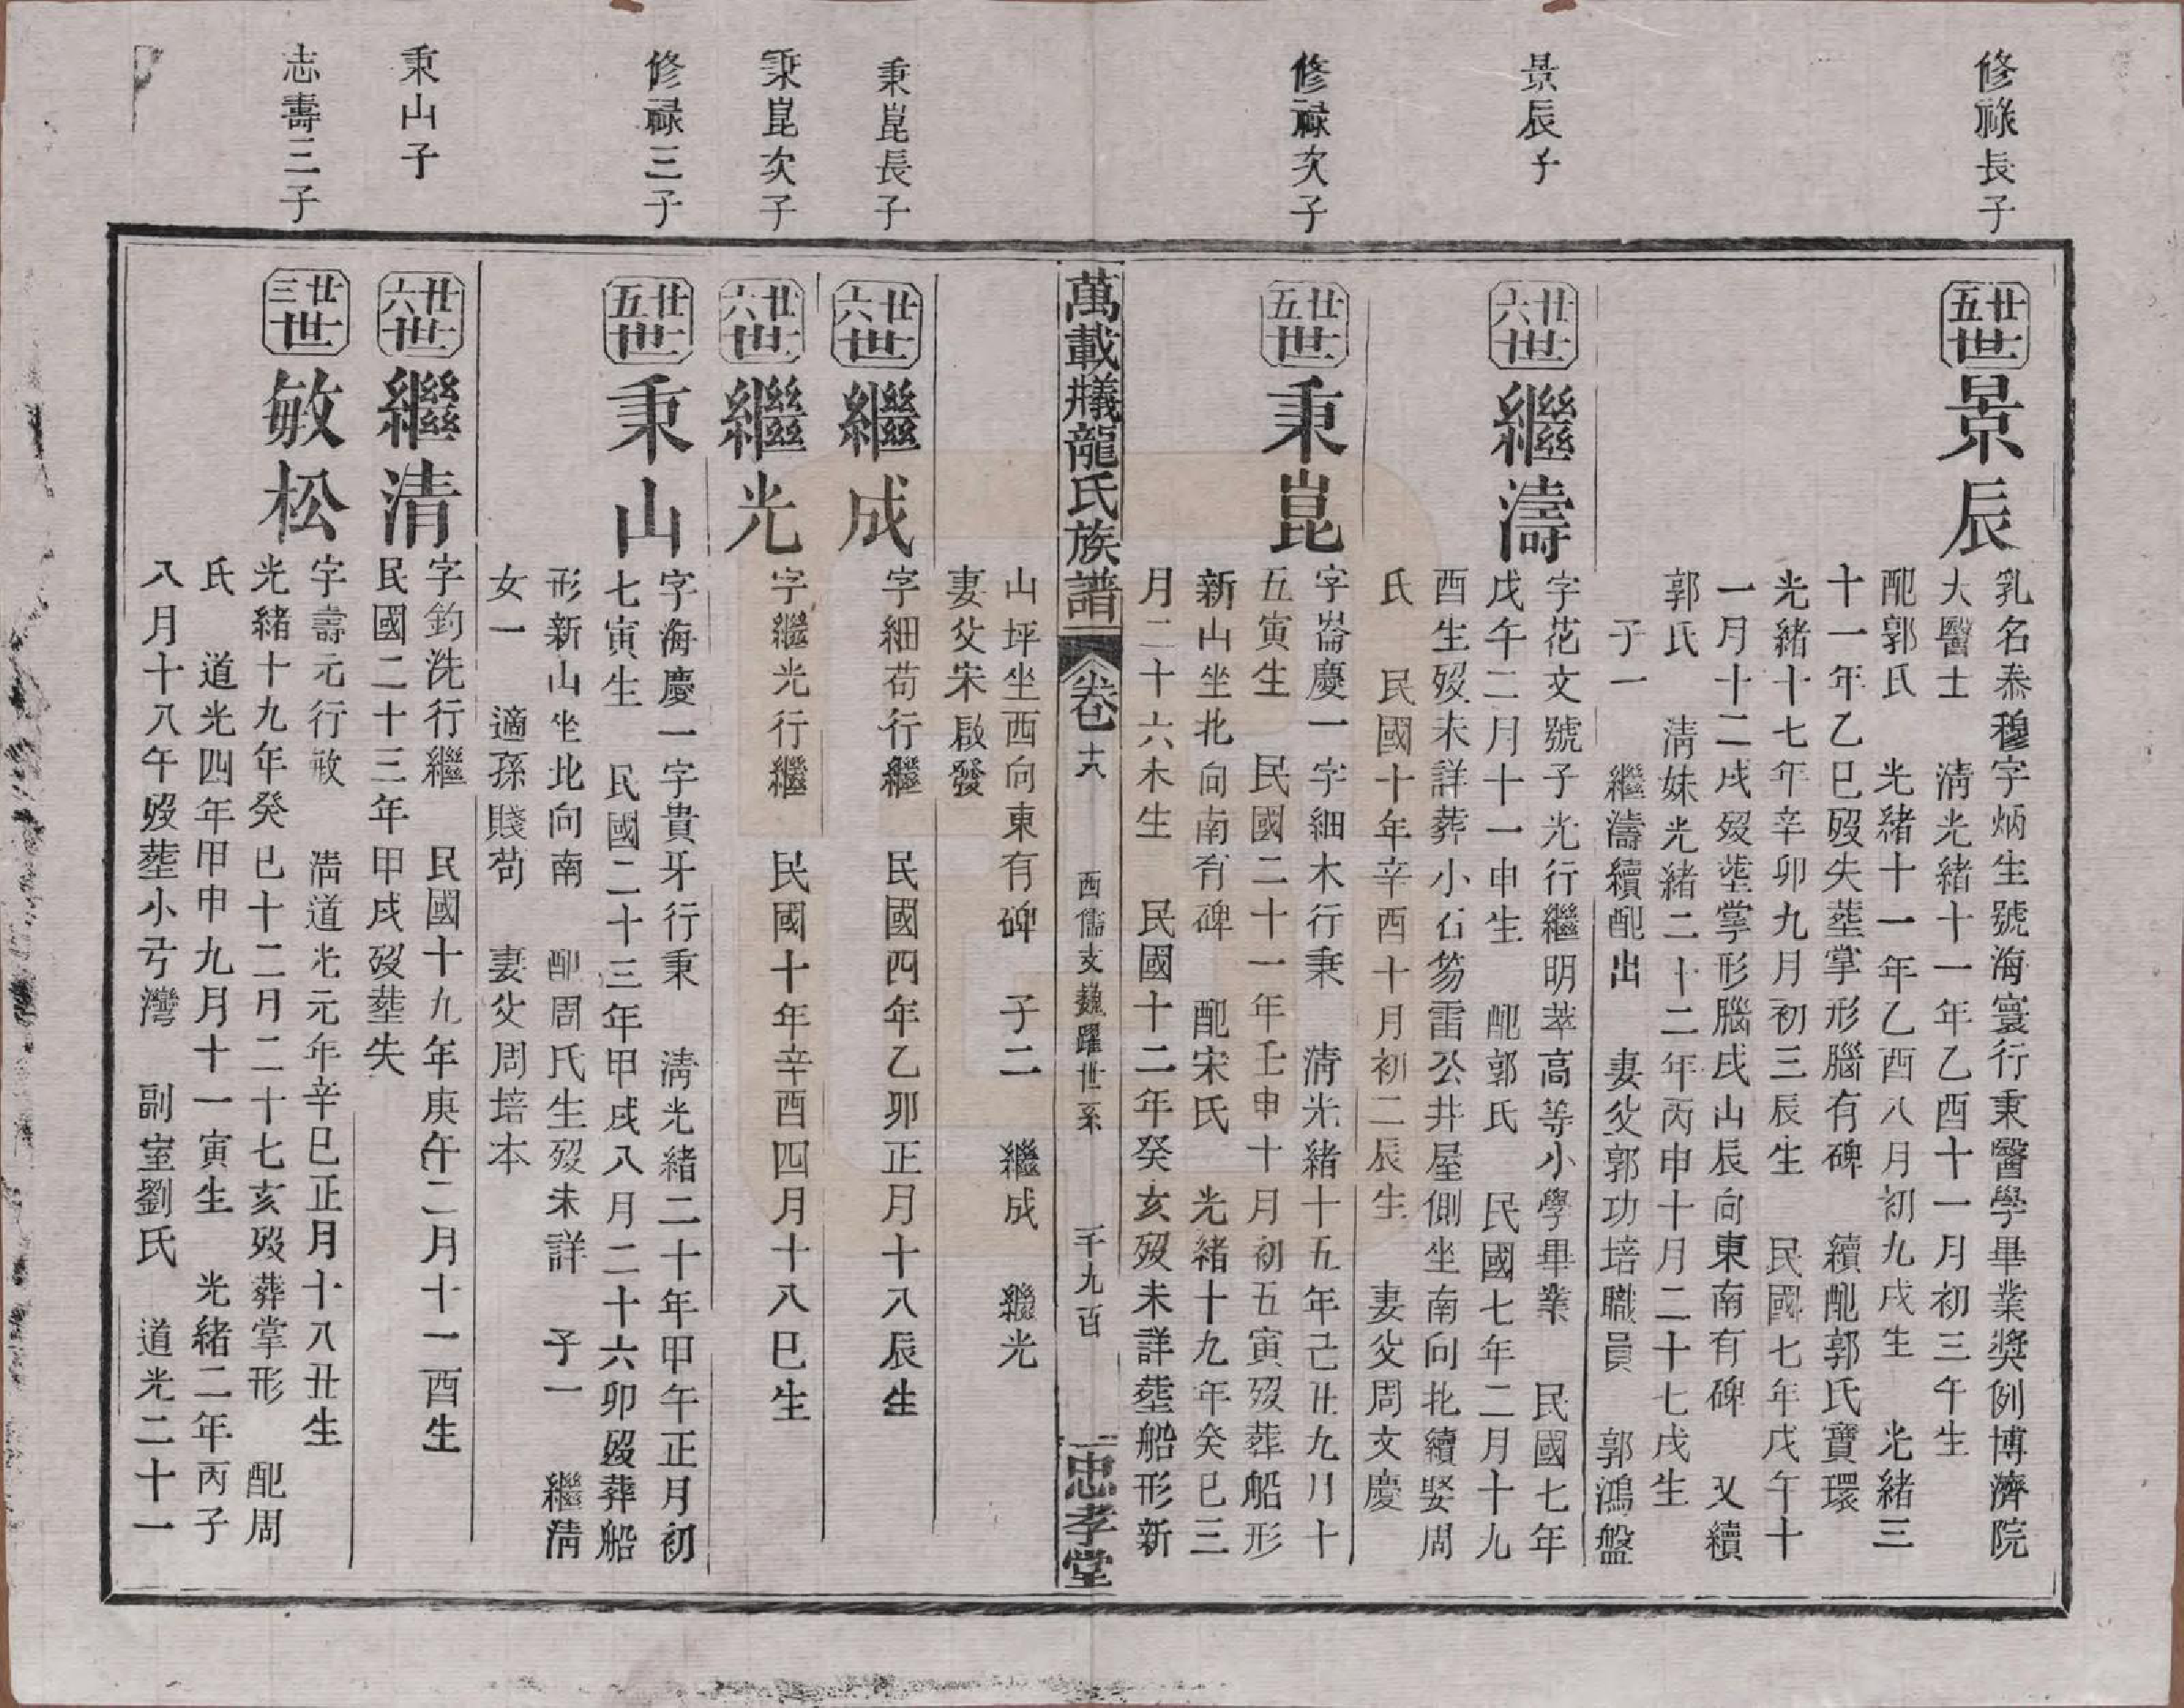 修祿長子
廿五世 景辰
乳名泰穆字炳生號海寰行秉醫學畢業獎例博濟院
大醫士 清光緒十一年乙酉十一月初三午生
配郭氏 光緒十一年乙酉八月初九戌生 光緒三
十一年乙巳歿失塟掌形腦有碑 續配郭氏寶環
光緒十七年辛卯九月初三辰生 民國七年戊午十
一月十二戌歿塟掌形腦戌山辰向東南有碑 又續
郭氏 清妹光緒二十二年丙申十月二十七戌生
子一 繼濤續配出 妻父郭功培職員 郭鴻盤
景辰子
廿六世 繼濤
字花文號子光行繼明萃高等小學畢業 民國七年
戊午二月十一申生 配郭氏 民國七年二月十九
酉生歿未詳葬小石笏雷公井屋側坐南向北續娶周
氏 民國十年辛酉十月初二辰生 妻父周文慶
修祿次子
廿五世 秉崑
字崙慶一字細木行秉 清光緒十五年己丑九月十
五寅生 民國二十一年壬申十月初五寅歿葬船形
新山坐北向南有碑 配宋氏 光緒十九年癸巳三
月二十六未生 民國十二年癸亥歿未詳塟船形新
萬載㼁龍氏族譜 卷十八 西儒支巍躍世系 千九百 忠孝堂
山坪坐西向東有碑 子二 繼成 繼光
妻父宋啟發
秉崑長子
廿六世 繼成
字細苟行繼 民國四年乙卯正月十八辰生
秉崑次子
廿六世 繼光
字繼光行繼 民國十年辛酉四月十八巳生
修祿三子
廿五世 秉山
字海慶一字貴牙行秉 清光緒二十年甲午正月初
七寅生 民國二十三年甲戌八月二十六卯歿葬船
形新山坐北向南 配周氏生歿未詳 子一 繼清
女一 適孫賤苟 妻父周培本
秉山子
廿六世 繼清
字鈞洗行繼 民國十九年庚午二月十一酉生
民國二十三年甲戌歿塟失
志壽三子
廿三世 敏松
字壽元行敏 清道光元年辛巳正月十八丑生
光緒十九年癸巳十二月二十七亥歿葬掌形 配周
氏 道光四年甲申九月十一寅生 光緒二年丙子
八月十八午歿塟小弓灣 副室劉氏 道光二十一